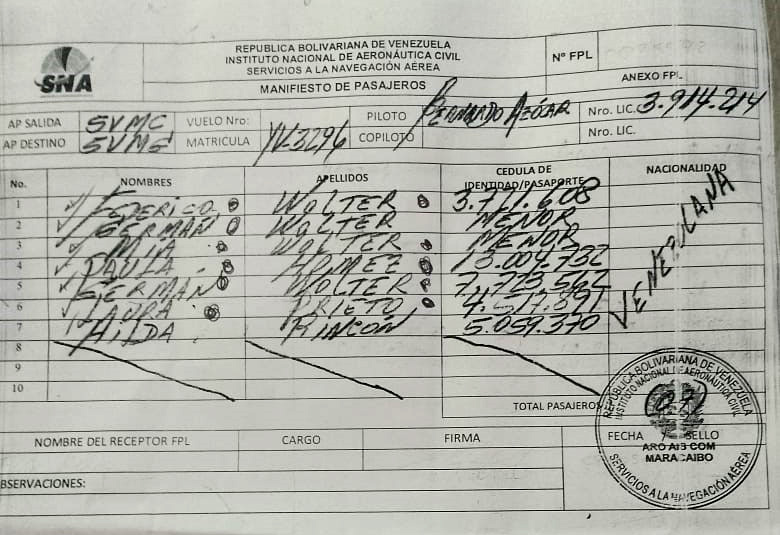 REPUBLICA BOLIVARIANA DE VENEZUELA
INSTITUTO NACIONAL DE AERONÁUTICA CIVIL
SERVICIOS A LA NAVEGACIÓN AÉREA
SNA
MANIFIESTO DE PASAJEROS
Nº FPL
ANEXO FPL
AP SALIDA SVMC VUELO Nro: PILOTO BERNARDO AZÓCAR Nro. LIC. 3.914.214
AP DESTINO SVMS MATRICULA YV-3296 COPILOTO Nro. LIC.
No. NOMBRES APELLIDOS CEDULA DE IDENTIDAD/PASAPORTE NACIONALIDAD
1 FEDERICO WOLTER 3.721.608
2 GERMAN WOLTER MENOR
3 MIA WOLTER MENOR
4 PAULA 13.004.732
5 GERMAN WOLTER 7.723.562
6 LAURA PRIETO
7 HILDA RINCÓN 5.059.370
VENEZOLANA
8
9
10
TOTAL PASAJEROS
NOMBRE DEL RECEPTOR FPL CARGO FIRMA FECHA / SELLO
OBSERVACIONES:
REPUBLICA BOLIVARIANA DE VENEZUELA
INSTITUTO NACIONAL DE AERONAUTICA CIVIL
ARO AIS COM
MARACAIBO
SERVICIOS A LA NAVEGACIÓN AÉREA